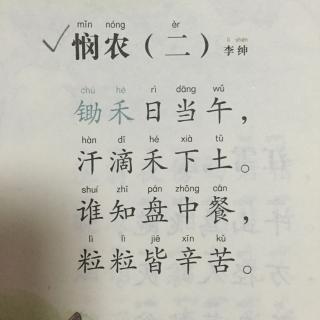 mǐn nóng èr
悯农（二）
lǐ shēn
李绅
chú hé rì dāng wǔ
锄禾日当午，
hàn dī hé xià tǔ
汗滴禾下土。
shuí zhī pán zhōng cān
谁知盘中餐，
lì lì jiē xīn kǔ
粒粒皆辛苦。